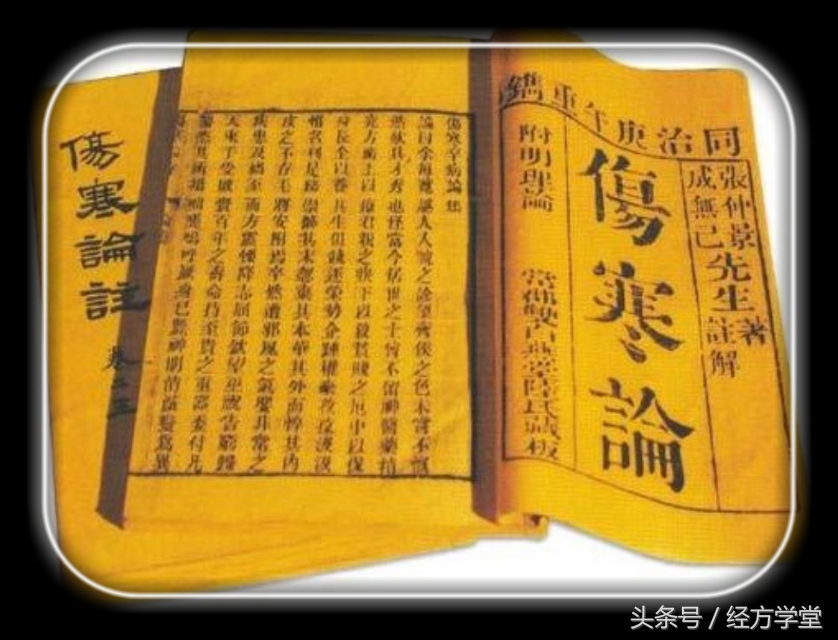 同治庚午重鐫
張仲景
成無己
先生
著
註解
傷寒論
附明理論
古燕堂陸氏藏板
傷寒卒病論集
論曰余每覽越人入虢之診望齊侯之色未嘗不慨
然歎其才秀也怪當今居世之士曾不留神醫藥精
究方術上以療君親之疾下以救貧賤之厄中以保
身長全以養其生但競逐榮勢企踵權豪孜孜汲汲
惟名利是務崇飾其末忽棄其本華其外而悴其內
皮之不存毛將安附焉卒然遭邪風之氣嬰非常之
疾患及禍至而方震慄降志屈節欽望巫祝告窮歸
天束手受敗賷百年之壽命持至貴之重器委付凡
醫恣其所措咄嗟嗚呼厥身已斃神明消滅變為異
傷寒論註
卷二三
头条号 / 经方学堂